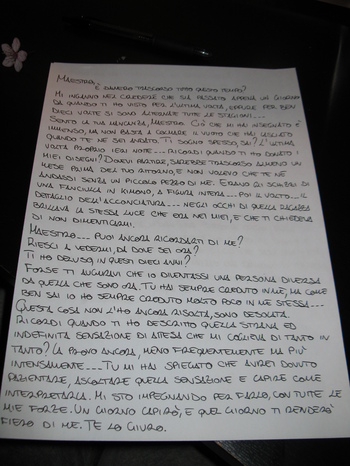 MAESTRO,
È DAVVERO TRASCORSO TUTTO QUESTO TEMPO?
MI INGANNO NEL CREDERE CHE SIA PASSATO APPENA UN GIORNO
DA QUANDO TI HO VISTO PER L'ULTIMA VOLTA, EPPURE PER BEN
DIECI VOLTE SI SONO ALTERNATE TUTTE LE STAGIONI...
SENTO LA TUA MANCANZA, MAESTRO. CIÒ CHE MI HAI INSEGNATO È
IMMENSO, MA NON BASTA A COLMARE IL VUOTO CHE HAI LASCIATO
QUANDO TE NE SEI ANDATO. TI SOGNO SPESSO, SAI? L'ULTIMA
VOLTA PROPRIO IERI NOTTE... RICORDI QUANDO TI HO DONATO I
MIEI DISEGNI? DOVEVI PARTIRE, SAREBBE TRASCORSO ALMENO UN
MESE PRIMA DEL TUO RITORNO, E NON VOLEVO CHE TE NE
ANDASSI SENZA UN PICCOLO PEZZO DI ME. ERANO GLI SCHIZZI DI
UNA FANCIULLA IN KIMONO, A FIGURA INTERA... POI IL VOLTO... IL
DETTAGLIO DELL'ACCONCIATURA... NEGLI OCCHI DI QUELLA RAGAZZA
BRILLAVA LA STESSA LUCE CHE ERA NEI MIEI, E CHE TI CHIEDEVA
DI NON DIMENTICARMI.
MAESTRO... PUOI ANCORA RICORDARTI DI ME?
RIESCI A VEDERMI, DA DOVE SEI ORA?
TI HO DELUSO, IN QUESTI DIECI ANNI?
FORSE TI AUGURAVI CHE IO DIVENTASSI UNA PERSONA DIVERSA
DA QUELLA CHE SONO ORA. TU HAI SEMPRE CREDUTO IN ME, MA COME
BEN SAI IO HO SEMPRE CREDUTO MOLTO POCO IN ME STESSA...
QUESTA COSA NON L'HO ANCORA RISOLTA, SONO DESOLATA.
RICORDI QUANDO TI HO DESCRITTO QUELLA STRANA ED
INDEFINITA SENSAZIONE DI ATTESA CHE MI COGLIEVA DI TANTO IN
TANTO? LA PROVO ANCORA, MENO FREQUENTEMENTE MA PIÙ
INTENSAMENTE... TU MI HAI SPIEGATO CHE AVREI DOVUTO
PAZIENTARE, ASCOLTARE QUELLA SENSAZIONE E CAPIRE COME
INTERPRETARLA. MI STO IMPEGNANDO PER FARLO, CON TUTTE LE
MIE FORZE. UN GIORNO CAPIRÒ, E QUEL GIORNO TI RENDERÒ
FIERO DI ME. TE LO GIURO.